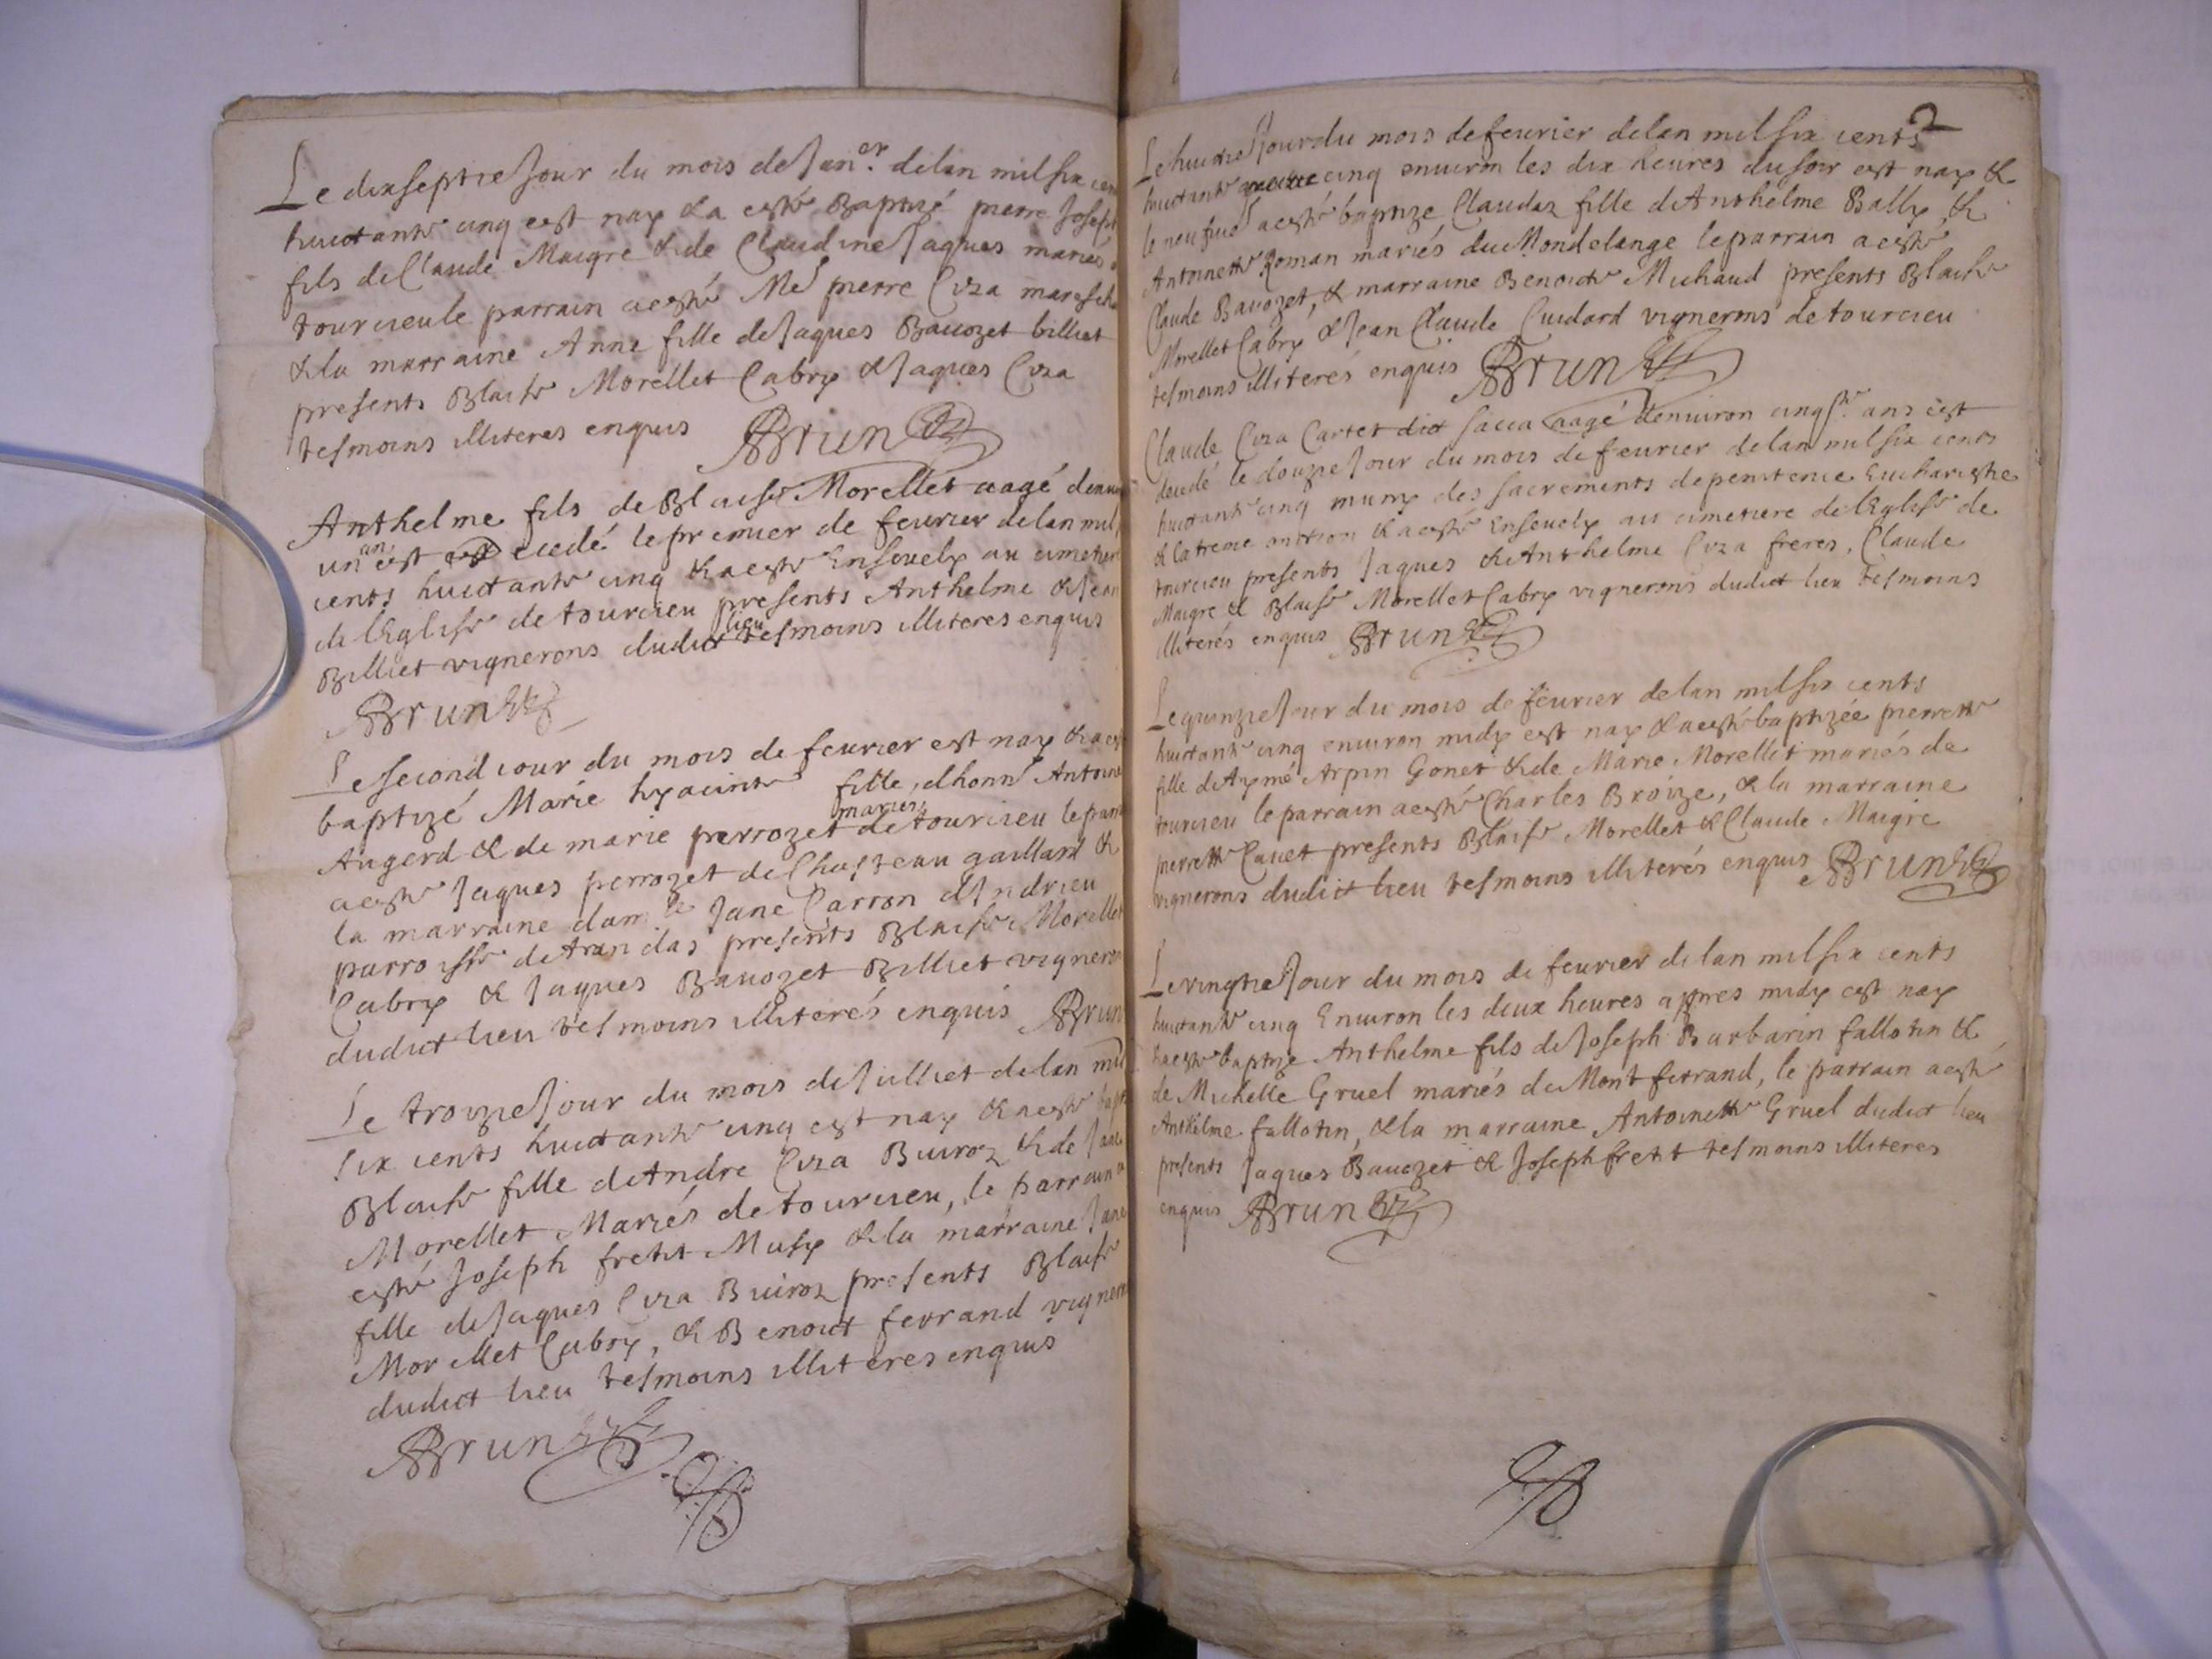 Le dixseptie Jour du mois de Jan.er de lan mil six cen
huictante cinq est nay & a esté Baptizé pierre Joseph
fils de Claude Maigre & de Claudine Jaques mariés
tourcieu le parrain a esté Me pierre Cyza maresch
& la marraine Anne fille de Jaques Bavozet billiet
presents Blaise Morellet Cabry & Jaques Cyza
tesmoins illiteres enquis Brun
Anthelme fils de Blaise Morellet aagé denui
un an est decedé le premier de feurier de lan mil
cents huictante cinq & a este Ensevely au cimetier
de l'Eglise de tourcieu presents Anthelme & Jean
Billiet vignerons dudict lieu tesmoins illiteres enquis
Brun
Le second iour du mois de feurier est nay & a est
baptizé Marie hyacinte fille, dhonn Antoine
Augerd & de marie perrozet mariés de tourcieu le parr
a este Jaques perrozet de Chasteau gaillard &
la marraine dam.le Jane Carron d'Indrieu
parroisse de tran das presents Blaise Morellet
Cabry & Jaques Bavozet Billiet vigneron
dudict lieu tesmoins illiterés enquis Brun
Le trozie Jour du mois de Juilliet de lan mil
six cents huictante cinq est nay & a este bapt
Blaise fille de Andre Cyza Buiroz & de Jane
Morellet Mariés de tourcieu, le parrain a
esté Joseph fretit Musy & la marraine Jane
fille de Jaques Cyza Buiroz presents Blaise
Morellet Cabry, & Benoict ferrand vigneron
dudict lieu tesmoins illiteres enquis
Brun
2
Le huictie Jour du mois de feurier de lan mil six cents
huictante cinq enuiron les dix heures du soir est nay &
le neufuie a esté baptize Claudaz fille de Anthelme Bally &
Antoinette Roman mariés du Mondelange le parrain a esté
Claude Bavozet, & marraine Benoicte Michaud presents Blaise
Morellet Cabry & Jean Claude Cuidard vignerons de tourcieu
tesmoins illiterés enquis Brun
Claude Cyza Cartet dict sacca aagé denuiron cinq.te ans est
decedé le douzie Jour du mois de feurier de lan mil six cents
huictante cinq muny des sacrements de penitence Eucharistie
& latreme onction & a esté Ensevely au cimetiere de l'Eglise de
tourcieu presents Jaques & Anthelme Cyza freres, Claude
Maigre & Blaise Morellet Cabry vignerons dudict lieu tesmoins
illiterés enquis Brun
Le quinzie Jour du mois de feurier de lan mil six cents
huictante cinq enuiron midy est nay & a esté baptizée pierrette
fille de Aymé Arpin Gonet & de Marie Morellet mariés de
tourcieu le parrain a esté Charles Broize, & la marraine
pierrette Cauet presents Blaise Morellet & Claude Maigre
vignerons dudict lieu tesmoins illiterés enquis Brun
Le vingtie Jour du mois de feurier de lan mil six cents
huictante cinq Enuiron les deux heures appres midy est nay
& a este baptize Anthelme fils de Joseph Barbarin fallotin &
de Michelle Gruel mariés de Mont ferrand, le parrain a esté
Anthelme fallotin, & la marraine Antoinette Gruel dudict lieu
presents Jaques Bavozet & Joseph fretit tesmoins illiteres
enquis Brun